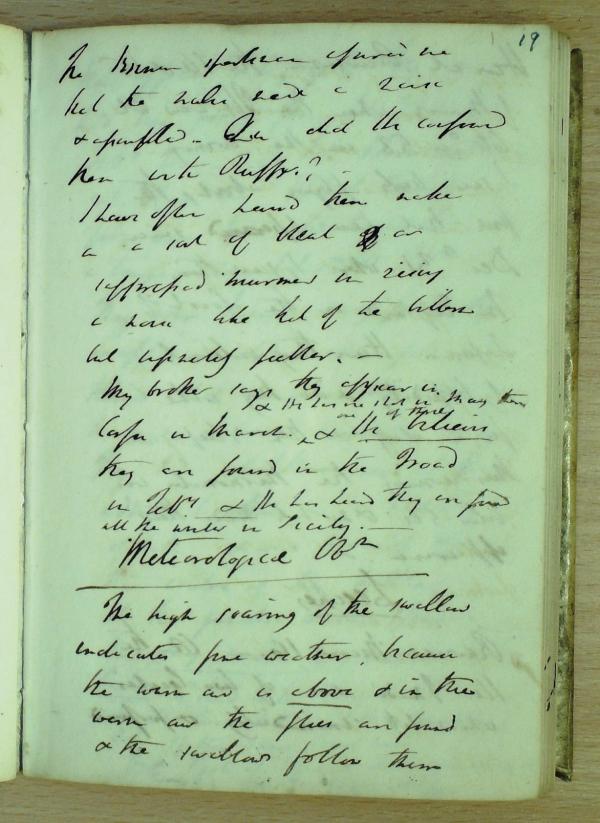 19
The sportsmen assured me
that the snipe made a noise
& . did he confound
them with Ruffs?
I have often heard them make
a sort of bleat or
suppressed murmur in rising
a noise like that of the bittern
but infinitely feebler. —
My brother says they appear in
& he has one shot in May there
Corfu in March. & he believes
one of three
they are found in the Troad
in Feby & he has heard they are found
all the winter in Sicily. —
Meteorological Obn
The high soaring of the swallow
indicates fine weather, because
the warm air is above & in this
warm air the flies are found
& the swallows follow them